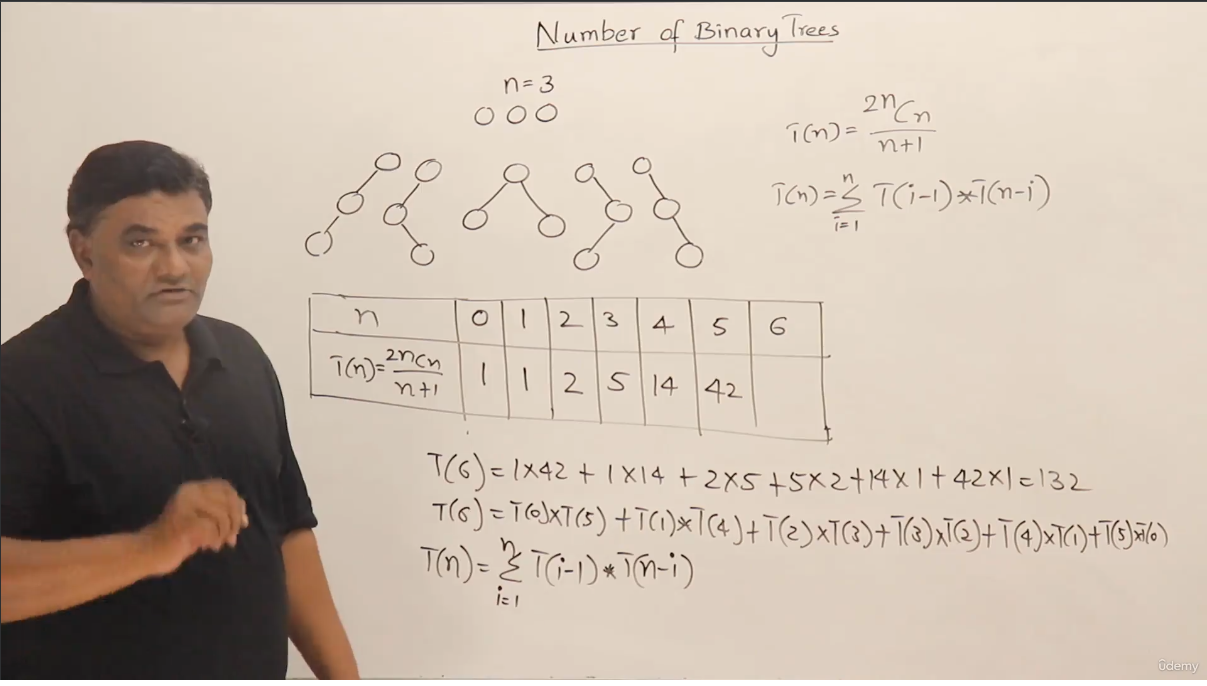 Number of Binary Trees
n=3
T(n)= 2nCn / n+1
T(n)= n Σ i=1 T(i-1)*T(n-i)
n 0 1 2 3 4 5 6
T(n)= 2nCn / n+1 1 1 2 5 14 42
T(6)=1×42 + 1×14 + 2×5 +5×2+14×1+42×1=132
T(6)=T(0)×T(5) +T(1)×T(4)+T(2)×T(3)+T(3)×T(2)+T(4)×T(1)+T(5)×T(0)
T(n)= n Σ i=1 T(i-1)*T(n-i)
ûdemy